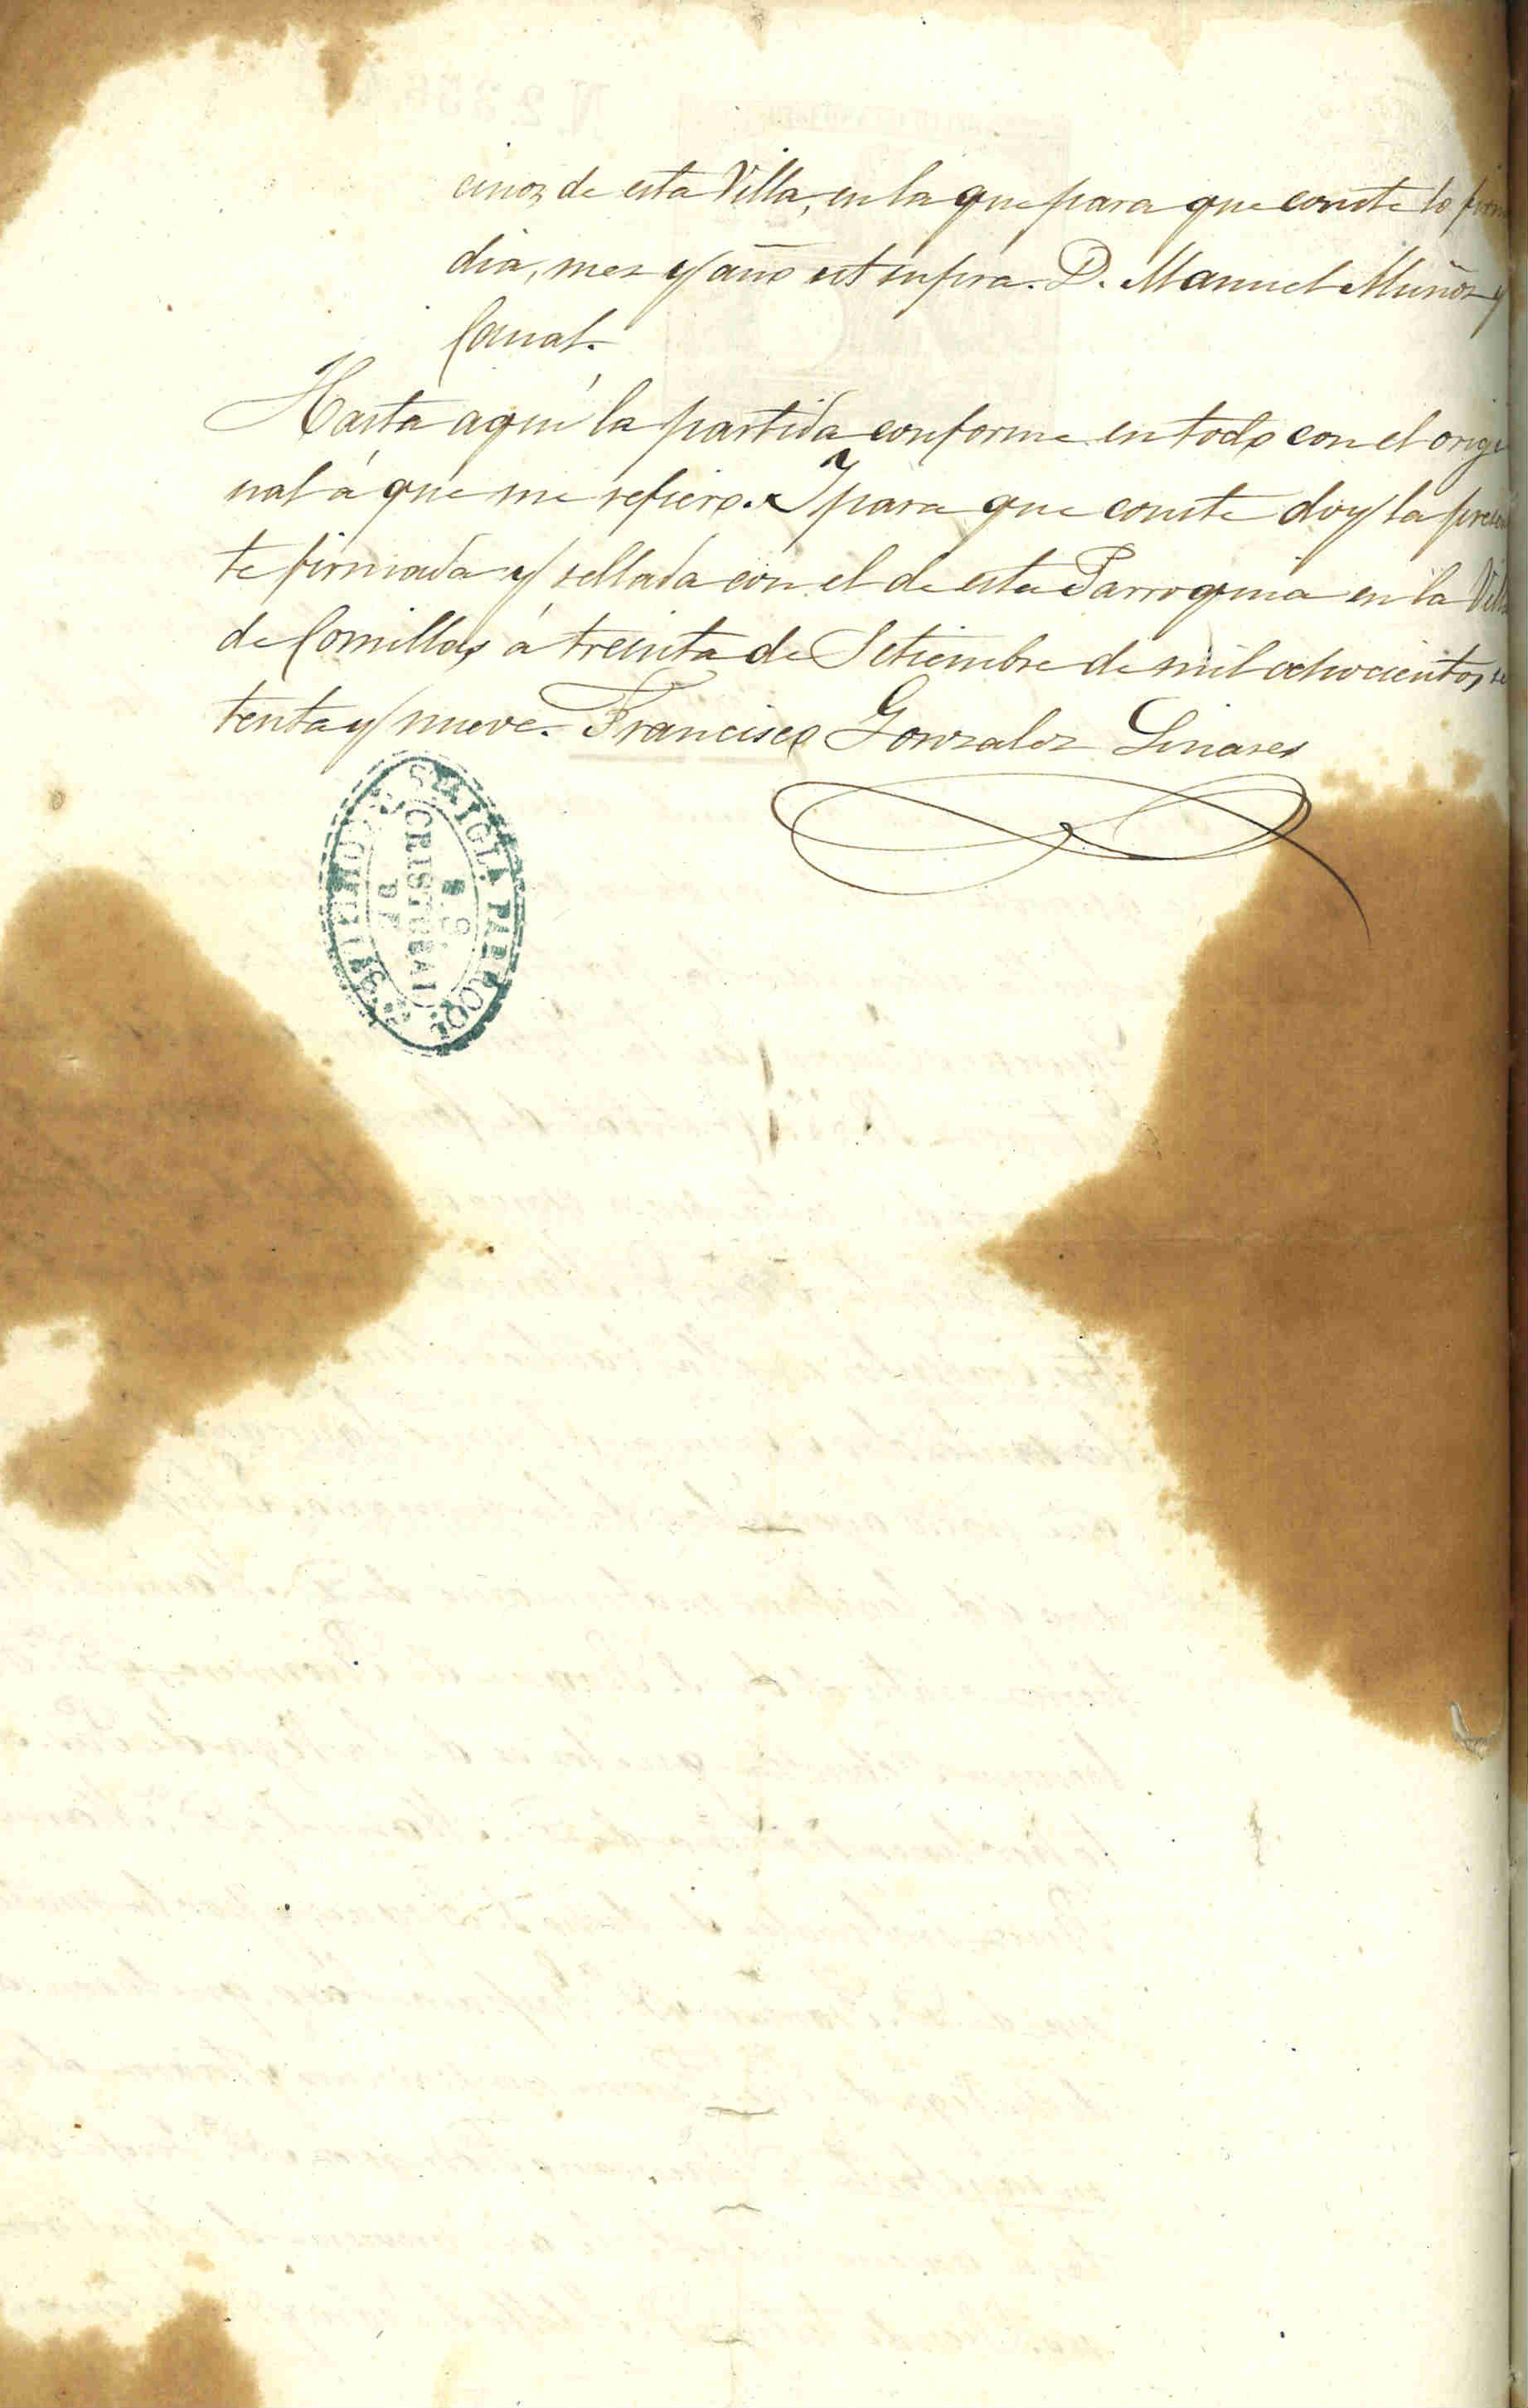 cinos de esta Villa, en la que para que conste lo firmo
dia, mes y año ut supra. D. Manuel Muñoz y
Canal.
Hasta aquí la partida conforme en todo con el origi
nal á que me refiero. Y para que conste doy la presen
te firmada y sellada con el de esta Parroquia en la Villa
de Comillas á treinta de Setiembre de mil ochocientos se
tenta y nueve. Francisco Gonzalez Linares
S. IGLª PARROQL
CRISTOBAL
DE
COMILLAS